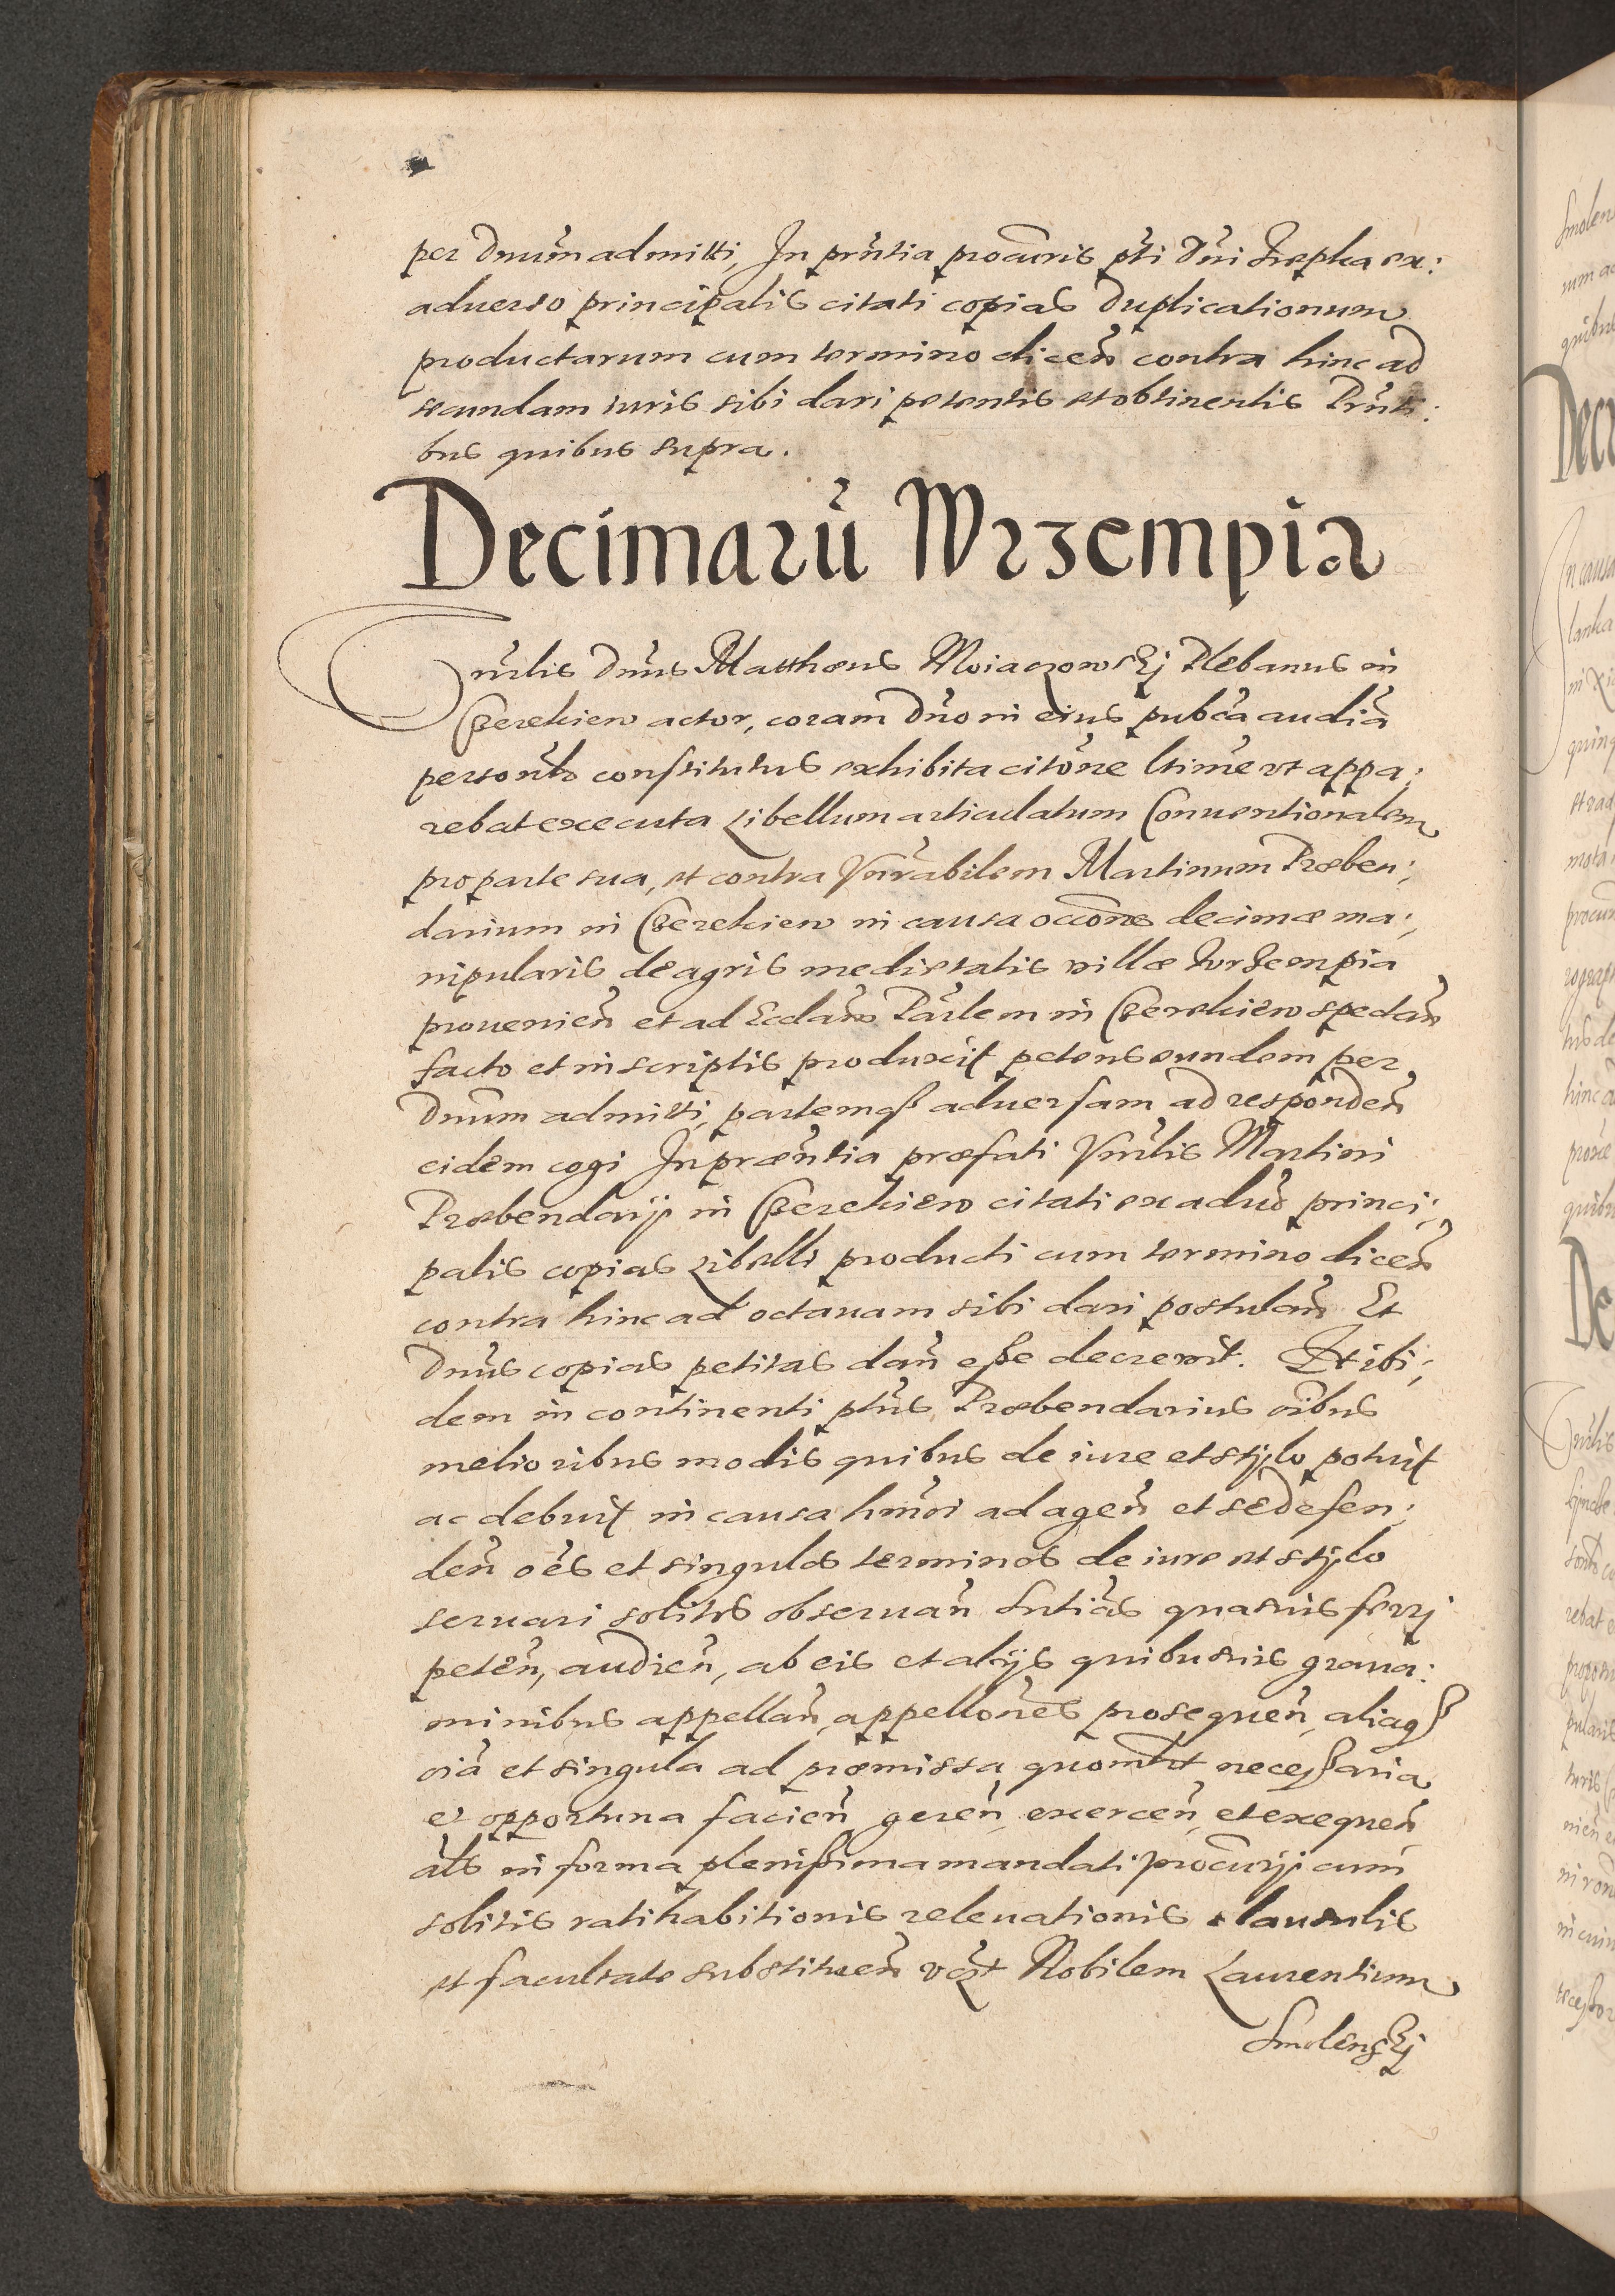 per Dnum̃ admitti, In prñtia procuris pti Dñi Srzepka ex:
aduerso principalis citati copias Duplicationum
productarum cum termino dicen̄ contra hinc ad
secundam iuris sibi dari petentis et obtinentis Prñti:
bus quibus supra.
Decimarū Wrzempia
Vñrlis Dnũs Matthæus Moiaczowskj Plebanus in
Czerekiew actor, coram Dño in eius pubca audiã
personlr constitutus exhibita citõne ltime vt appa:
rebat executa Libellum articulatum Conuentionalem
pro parte sua, et contra Vñrabilem Martinum Præben:
darium in Czerekiew in causa occõne decimæ ma:
nipularis de agris medietatis villæ Wrzempia
prouenien̄ et ad Ecclãm Pãrlem in Czerekiew spectan̄
facto et in scriptis produxit petens eundem per
Dnum admitti, partemqз aduersam ad responden̄
eidem cogi In præñtia præfati Vñrlis Martini
Præbendarij in Czerekiew citati ex aduõ princi:
palis copias Libelli producti cum termino dicen̄
contra hinc ad octauam sibi dari postulan̄ Et
Dnũs copias petitas dan̄ esse decreuit. Et ibi:
dem in continenti ptũs Præbendarius oĩbus
melioribus modis quibus de iure et stylo potuit
ac debuit in causa hmõi ad agen̄ et se defen:
den̄ oẽs et singulos terminos de iure et stylo
seruari solitos obseruan̄ sntiãs quasuis ferrj
peten̄, audien̄, ab eis et alijs quibusuis graua:
minibus appellan̄, appellõnes prosequen̄, aliaqз
oĩa et singula ad præmissa quomõlt necessaria
et opportuna facien̄ geren̄ exercen̄ et exequen̄
als in forma plenissima mandati procurij cum
solitis ratihabitionis releuationis clausulis
et facultate substituen̄ Nobilem Laurentium
Smolenskj